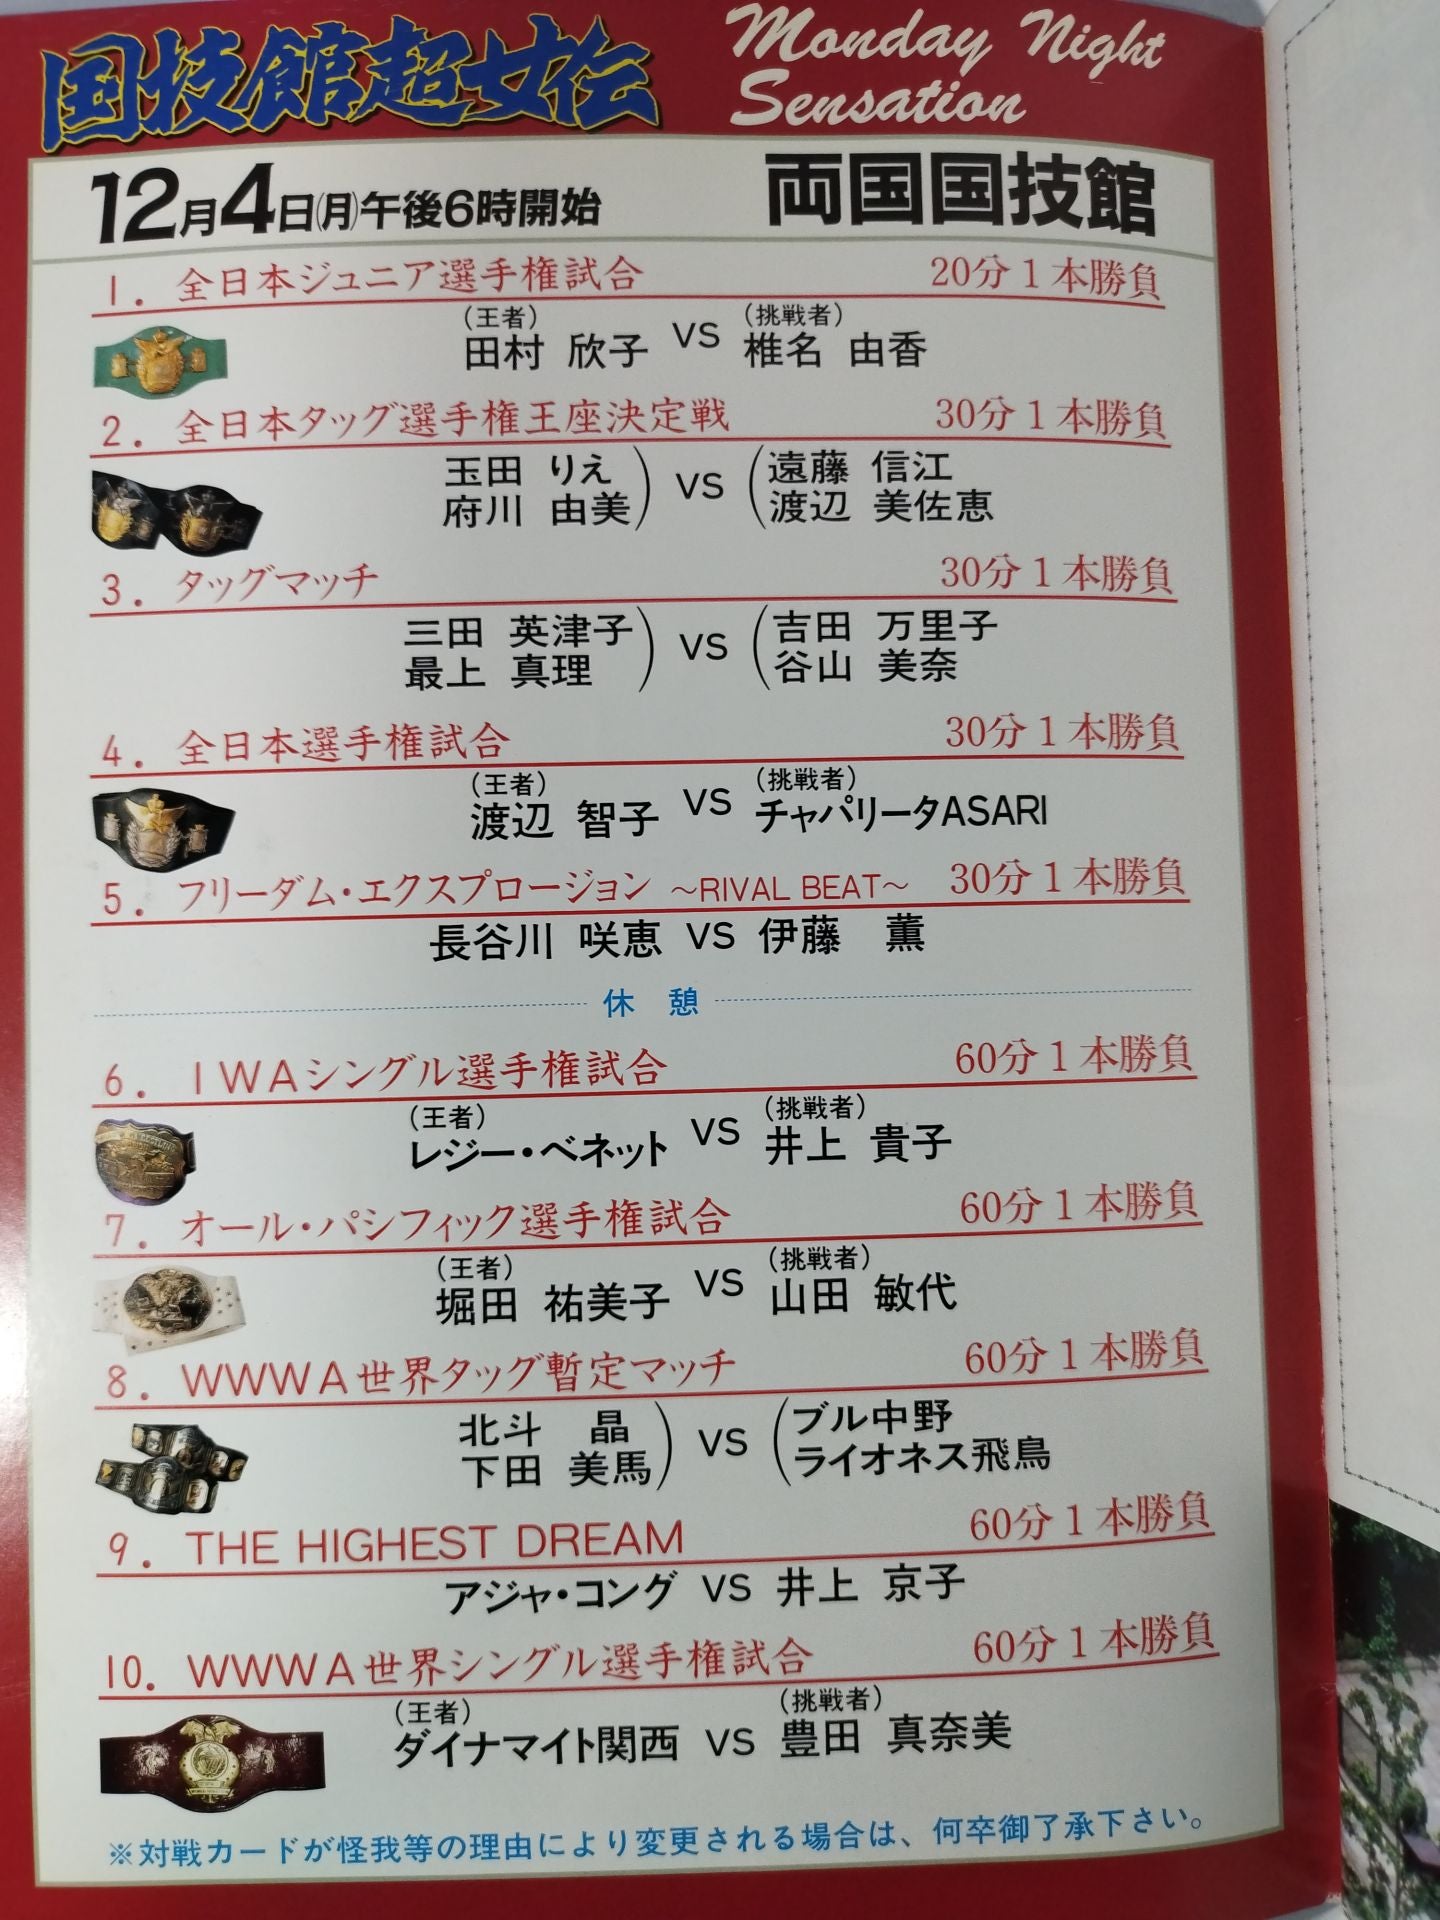 国技館超女伝
Monday Night
Sensation
12月4日(月)午後6時開始 両国国技館
1. 全日本ジュニア選手権試合 20分1本勝負
(王者) (挑戦者)
田村 欣子 VS 椎名 由香
2. 全日本タッグ選手権王座決定戦 30分1本勝負
玉田 りえ) VS (遠藤 信江
府川 由美 渡辺 美佐恵
3. タッグマッチ 30分1本勝負
三田 英津子) VS (吉田 万里子
最上 真理 谷山 美奈
4. 全日本選手権試合 30分1本勝負
(王者) (挑戦者)
渡辺 智子 VS チャパリータASARI
5. フリーダム・エクスプロージョン ～RIVAL BEAT～ 30分1本勝負
長谷川 咲恵 VS 伊藤 薫
休憩
6. IWAシングル選手権試合 60分1本勝負
(王者) (挑戦者)
レジー・ベネット VS 井上 貴子
7. オール・パシフィック選手権試合 60分1本勝負
(王者) (挑戦者)
堀田 祐美子 VS 山田 敏代
8. WWWA世界タッグ暫定マッチ 60分1本勝負
北斗 晶) VS (ブル中野
下田 美馬 ライオネス飛鳥
9. THE HIGHEST DREAM 60分1本勝負
アジャ・コング VS 井上 京子
10. WWWA世界シングル選手権試合 60分1本勝負
(王者) (挑戦者)
ダイナマイト関西 VS 豊田 真奈美
※対戦カードが怪我等の理由により変更される場合は、何卒御了承下さい。